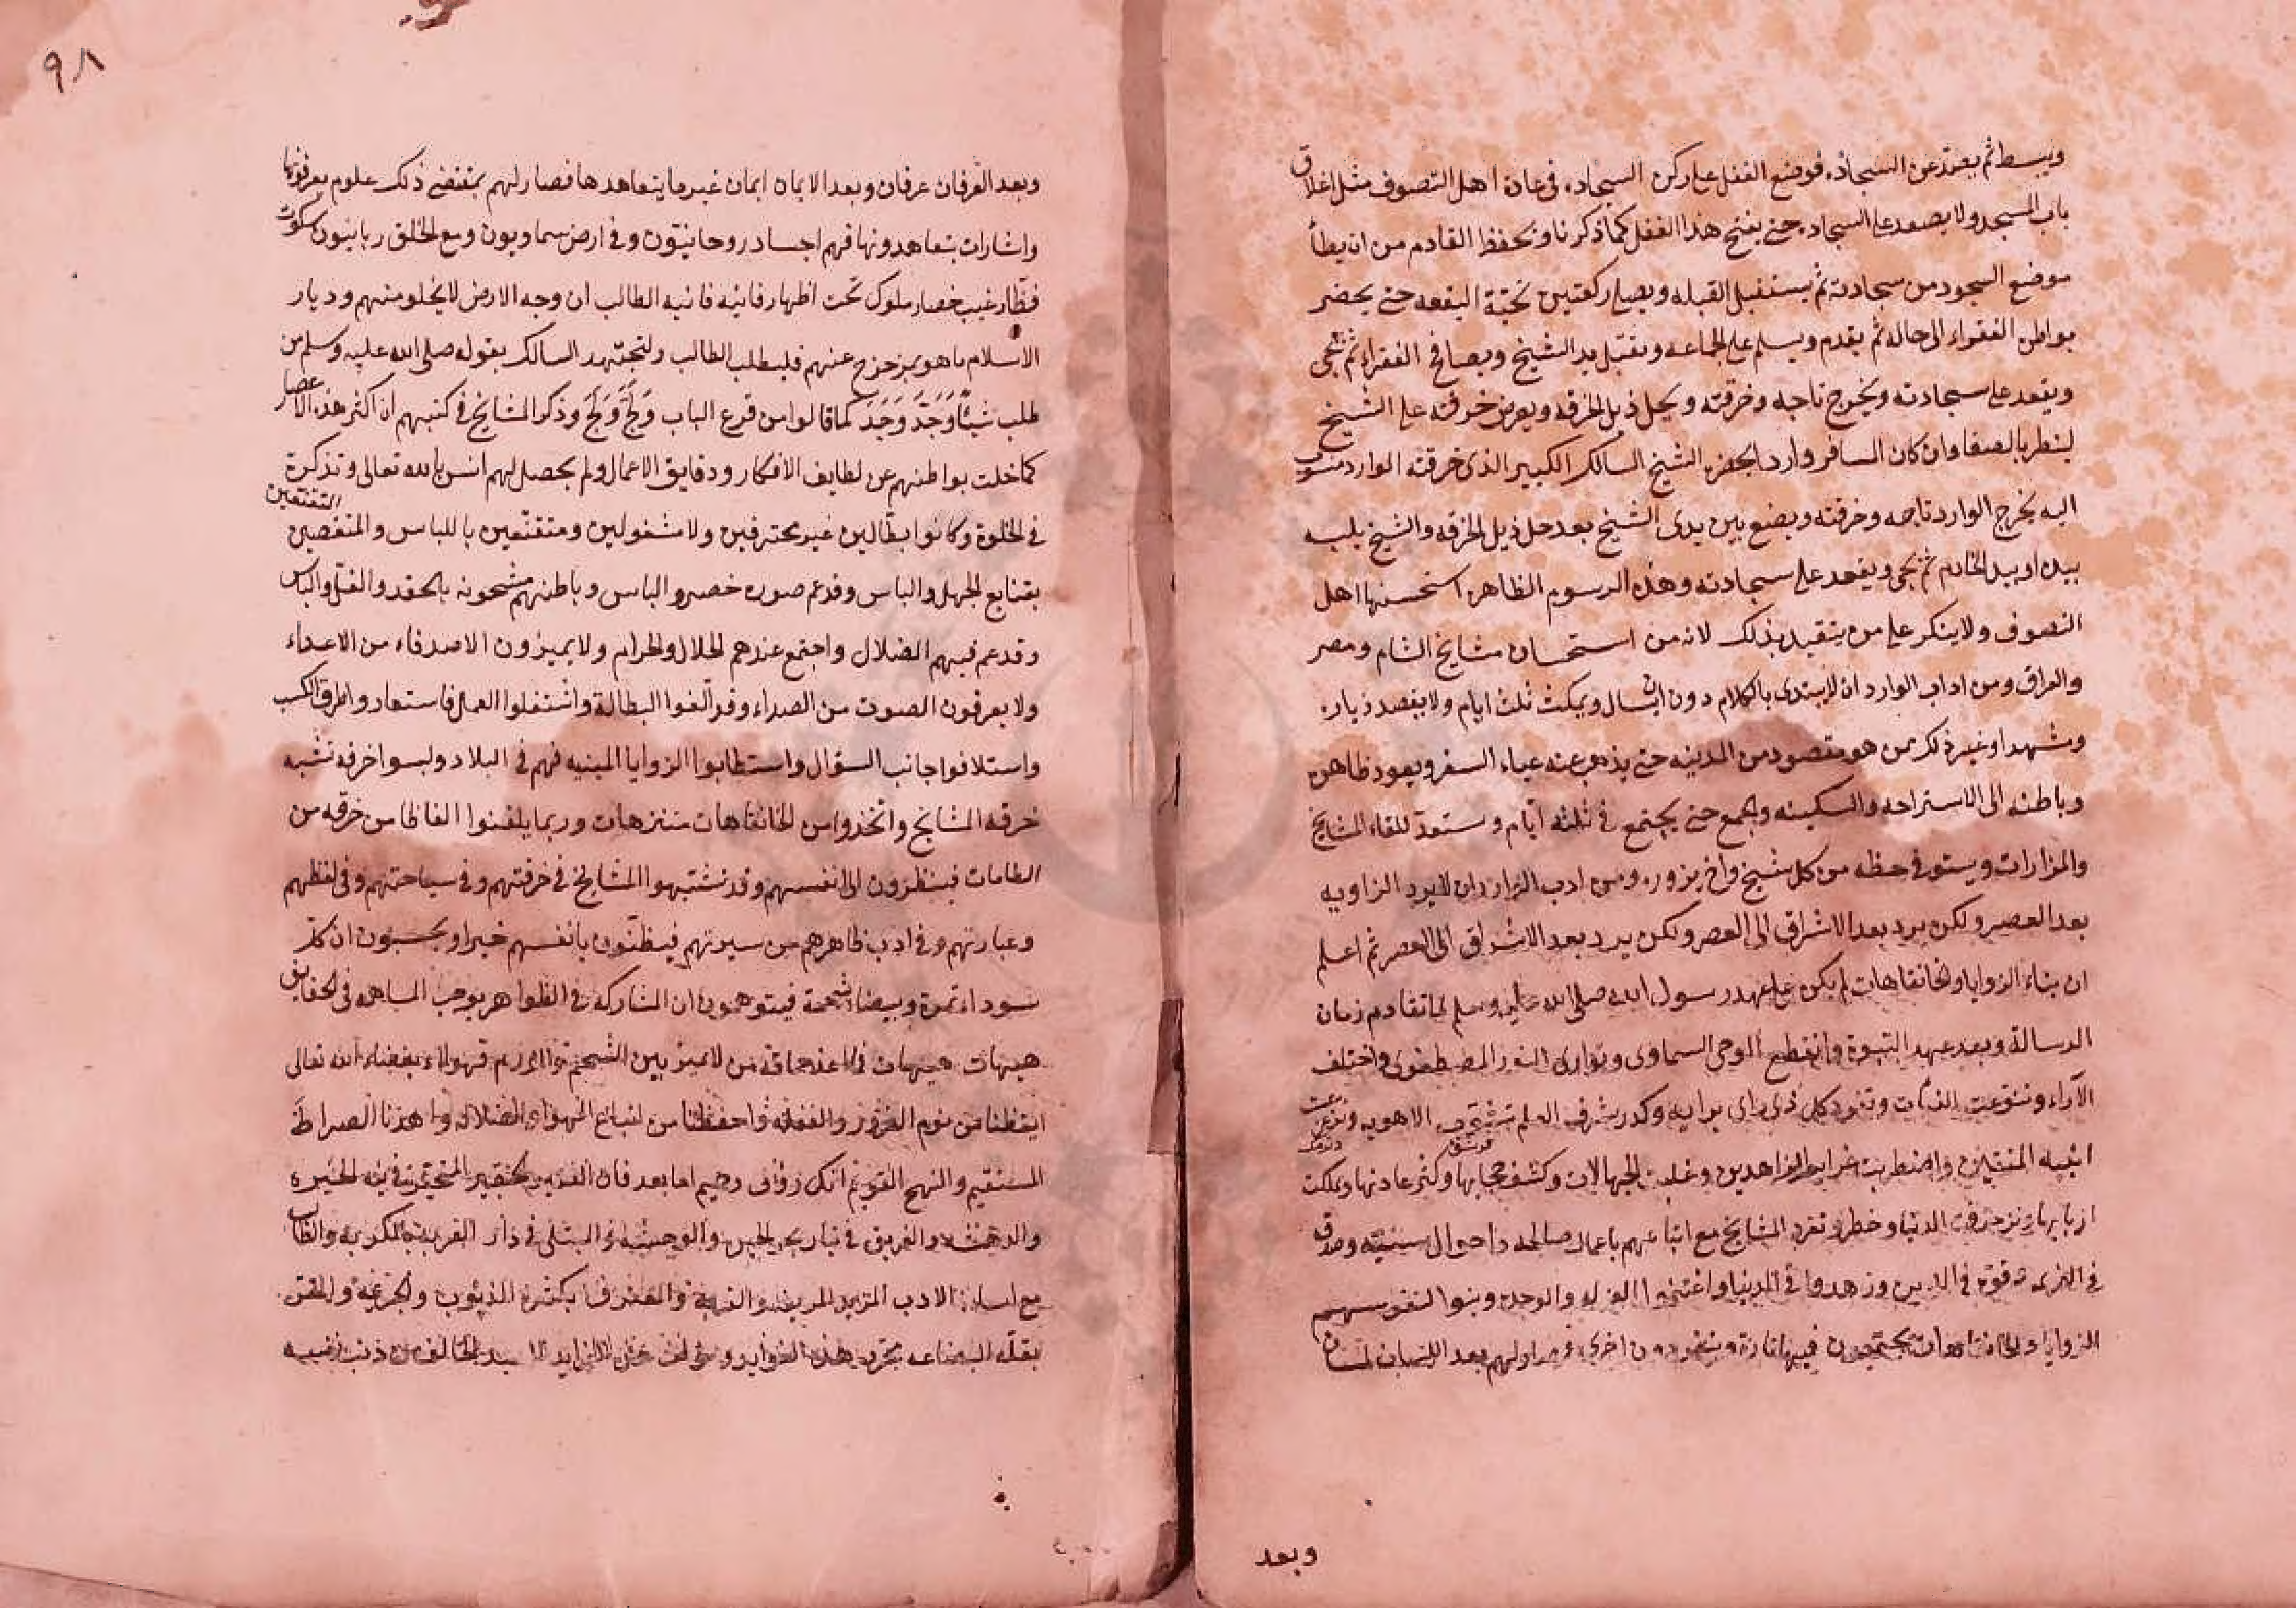 ويبسط ثم يقعد عن السجادة فوضع القفل على ركن السجادة في عادة اهل التصوف مثل اغلاق
باب المسجد ولا يصعد على السجادة حتى يفتح هذا القفل كما ذكرنا ويحفظ القادم من ان يطأ
موضع السجود من سجادته ثم يستقبل القبلة ويصلي ركعتين تحية البقعة حتى يحضر
بواطن الفقراء الى حاله ثم يقدم ويسلم على الجماعة ويقبل يد الشيخ ويصافح الفقراء ثم يجى
ويقعد على سجادته ويخرج تاجه وخرقته ويحل ذيل الخرقه ويعرض خرقته على الشيخ
لينظر بالصفا وان كان المسافر واردا بحضرة الشيخ السالك الكبير الذى خرقة الوارد منسوب
اليه يخرج الوارد تاجه وخرقته ويضع بين يدى الشيخ بعد حل ذيل الخرقه والشيخ يلبسه
بيده او بيد الخادم ثم يجى ويقعد على سجادته وهذه الرسوم الظاهره استحسنها اهل
التصوف ولا ينكر على من يتقيد بذلك لانه من استحسان مشايخ الشام ومصر
والعراق ومن اداب الوارد ان لا يبتدى بالكلام دون ان يسال ويمكث ثلث ايام ولا يقصد زيارة
ومشهد او غير ذلك ممن هو مقصود من المدينه حتى يذهب عنه عياء السفر ويعود ظاهره
وباطنه الى الاستراحه والسكينه ويجمع حتى يجتمع في ثلثه ايام ويستعد للقاء المشايخ
والمزارات ويستوفى حظه من كل شيخ واخ يزوره ومن ادب الزائر ان لا يرد الزاويه
بعد العصر ولكن يرد بعد الاشراق الى العصر ولكن يرد بعد الاشراق الى العصر ثم اعلم
ان بناء الزوايا والخانقاهات لم يكن على عهد رسول الله صلى الله عليه وسلم لما تقادم زمان
الرسالة وبعد عهد النبوة وانقطع الوحى السماوى وتوارى النور المصطفوى واختلف
الآراء وتنوعت وتفرد كل ذى راى برايه وكدر شرب العلم الاهويه
ابنية المتقين واضطربت عزايم الزاهدين وغلبت الجهالات وكشف حجابها وكثر عاداتها وتملكت
اربابها وتزخرفت الدنيا وخطر وتفرد المشايخ مع اتباعهم باعمال صالحه واحوال سنيه وصدق
في العزيمه وقوة في الدين وزهدوا في الدنيا واغتنموا العزله والوحده وبنوا لنفوسهم
الزوايا والخانقاهات يجتمعون فيها تارة وينفردون اخرى فصار لهم بعد اللسان لسان
وبعد
٩٨
وبعد العرفان عرفان وبعد الايمان ايمان غير ما يتعاهدها فصار لهم بمقتضى ذلك علوم يعرفونها
واشارات يتعاهدونها فهم اجساد روحانيون وفي ارض سماويون ومع الخلق ربانيون سكوت
نظار غيب حضار ملوك تحت اظهار فانيه الطالب ان وجه الارض لا يخلو منهم وديار
الاسلام ما هو بمزحزح عنهم فليطلب الطالب وليجتهد السالك بقوله صلى الله عليه وسلم من
طلب شيئا وَجَدَّ وَجَدَ كما قالوا من قرع الباب وَلَجَّ وَلَجَ وذكر المشايخ في كتبهم ان اكثر هذه الاعصار
كما خلت بواطنهم عن لطايف الافكار ودقايق الاعمال ولم يحصل لهم انس بالله تعالى وتذكرة
في الخلوة وكانوا بطالين غير محترفين ولا مشغولين ومتقنعين باللباس والمتقصين
بقنايع الجهل والباس وقد عم صوره خضر والباس وباطنهم مشحونه بالحقد والغل والباس
وقد عم فيهم الضلال واجتمع عندهم الحلال والحرام ولا يميزون الاصدقاء من الاعداء
ولا يعرفون الصوت من الصداء وقد ألفوا البطالة واشتغلوا العمل فاستعادوا طرق الكسب
واستلانوا جانب السؤال واستطابوا الزوايا المبنيه فهم في البلاد ولبسوا خرقه تشبه
خرقه المشايخ واتخذوا من الخانقاهات متنزهات وربما يلقنوا الفاظا من خرقه من
الطامات فينظرون الى انفسهم وقد تشبهوا المشايخ في خرقتهم وفي سياحتهم وفي لفظهم
وعبارتهم وفي ادب ظاهرهم من سيرتهم فيظنون بانفسهم خيرا ويحسبون ان كل
سوداء تمرة وبيضاء شحمة فيتوهمون ان المشاركه في الظواهر يوجب المساهمه في الحقايق
هيهات هيهات فما اعذ حماقة من لا يميز بين الشحم والورم فهولاء بغضاء الله تعالى
ايقظنا من نوم الغرور والغفلة واحفظنا من اتباع الهوى والضلاله واهدنا الصراط
المستقيم والنهج القويم انك رؤف رحيم اما بعد فان الفقير الحقير المتحير في تيه الحيرة
والدهشة والغريق في تيار بحر والوحشه والمبتلى في دار الغربة والكربه
مع اساءة الادب والمعترف بكثرة الذنوب والمقر
بقلة البضاعه يحرر هذه الفوايد